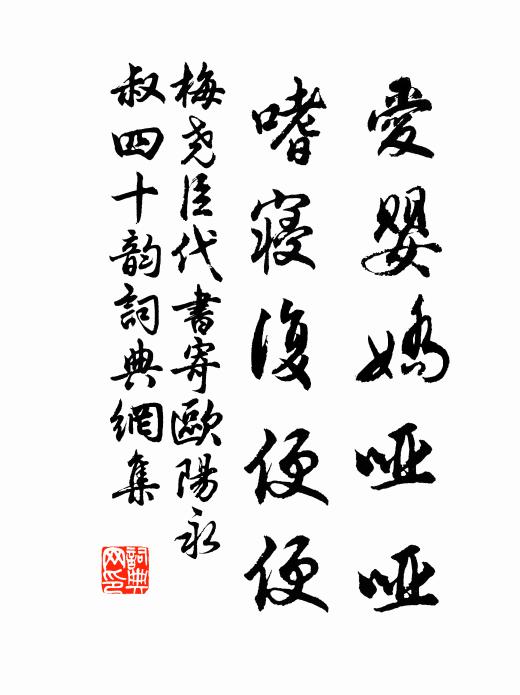 愛嬰嬌啞啞
嗜寝復便便
梅尧臣代書寄歐陽永
叔四十韵詞典網集
詞典网印